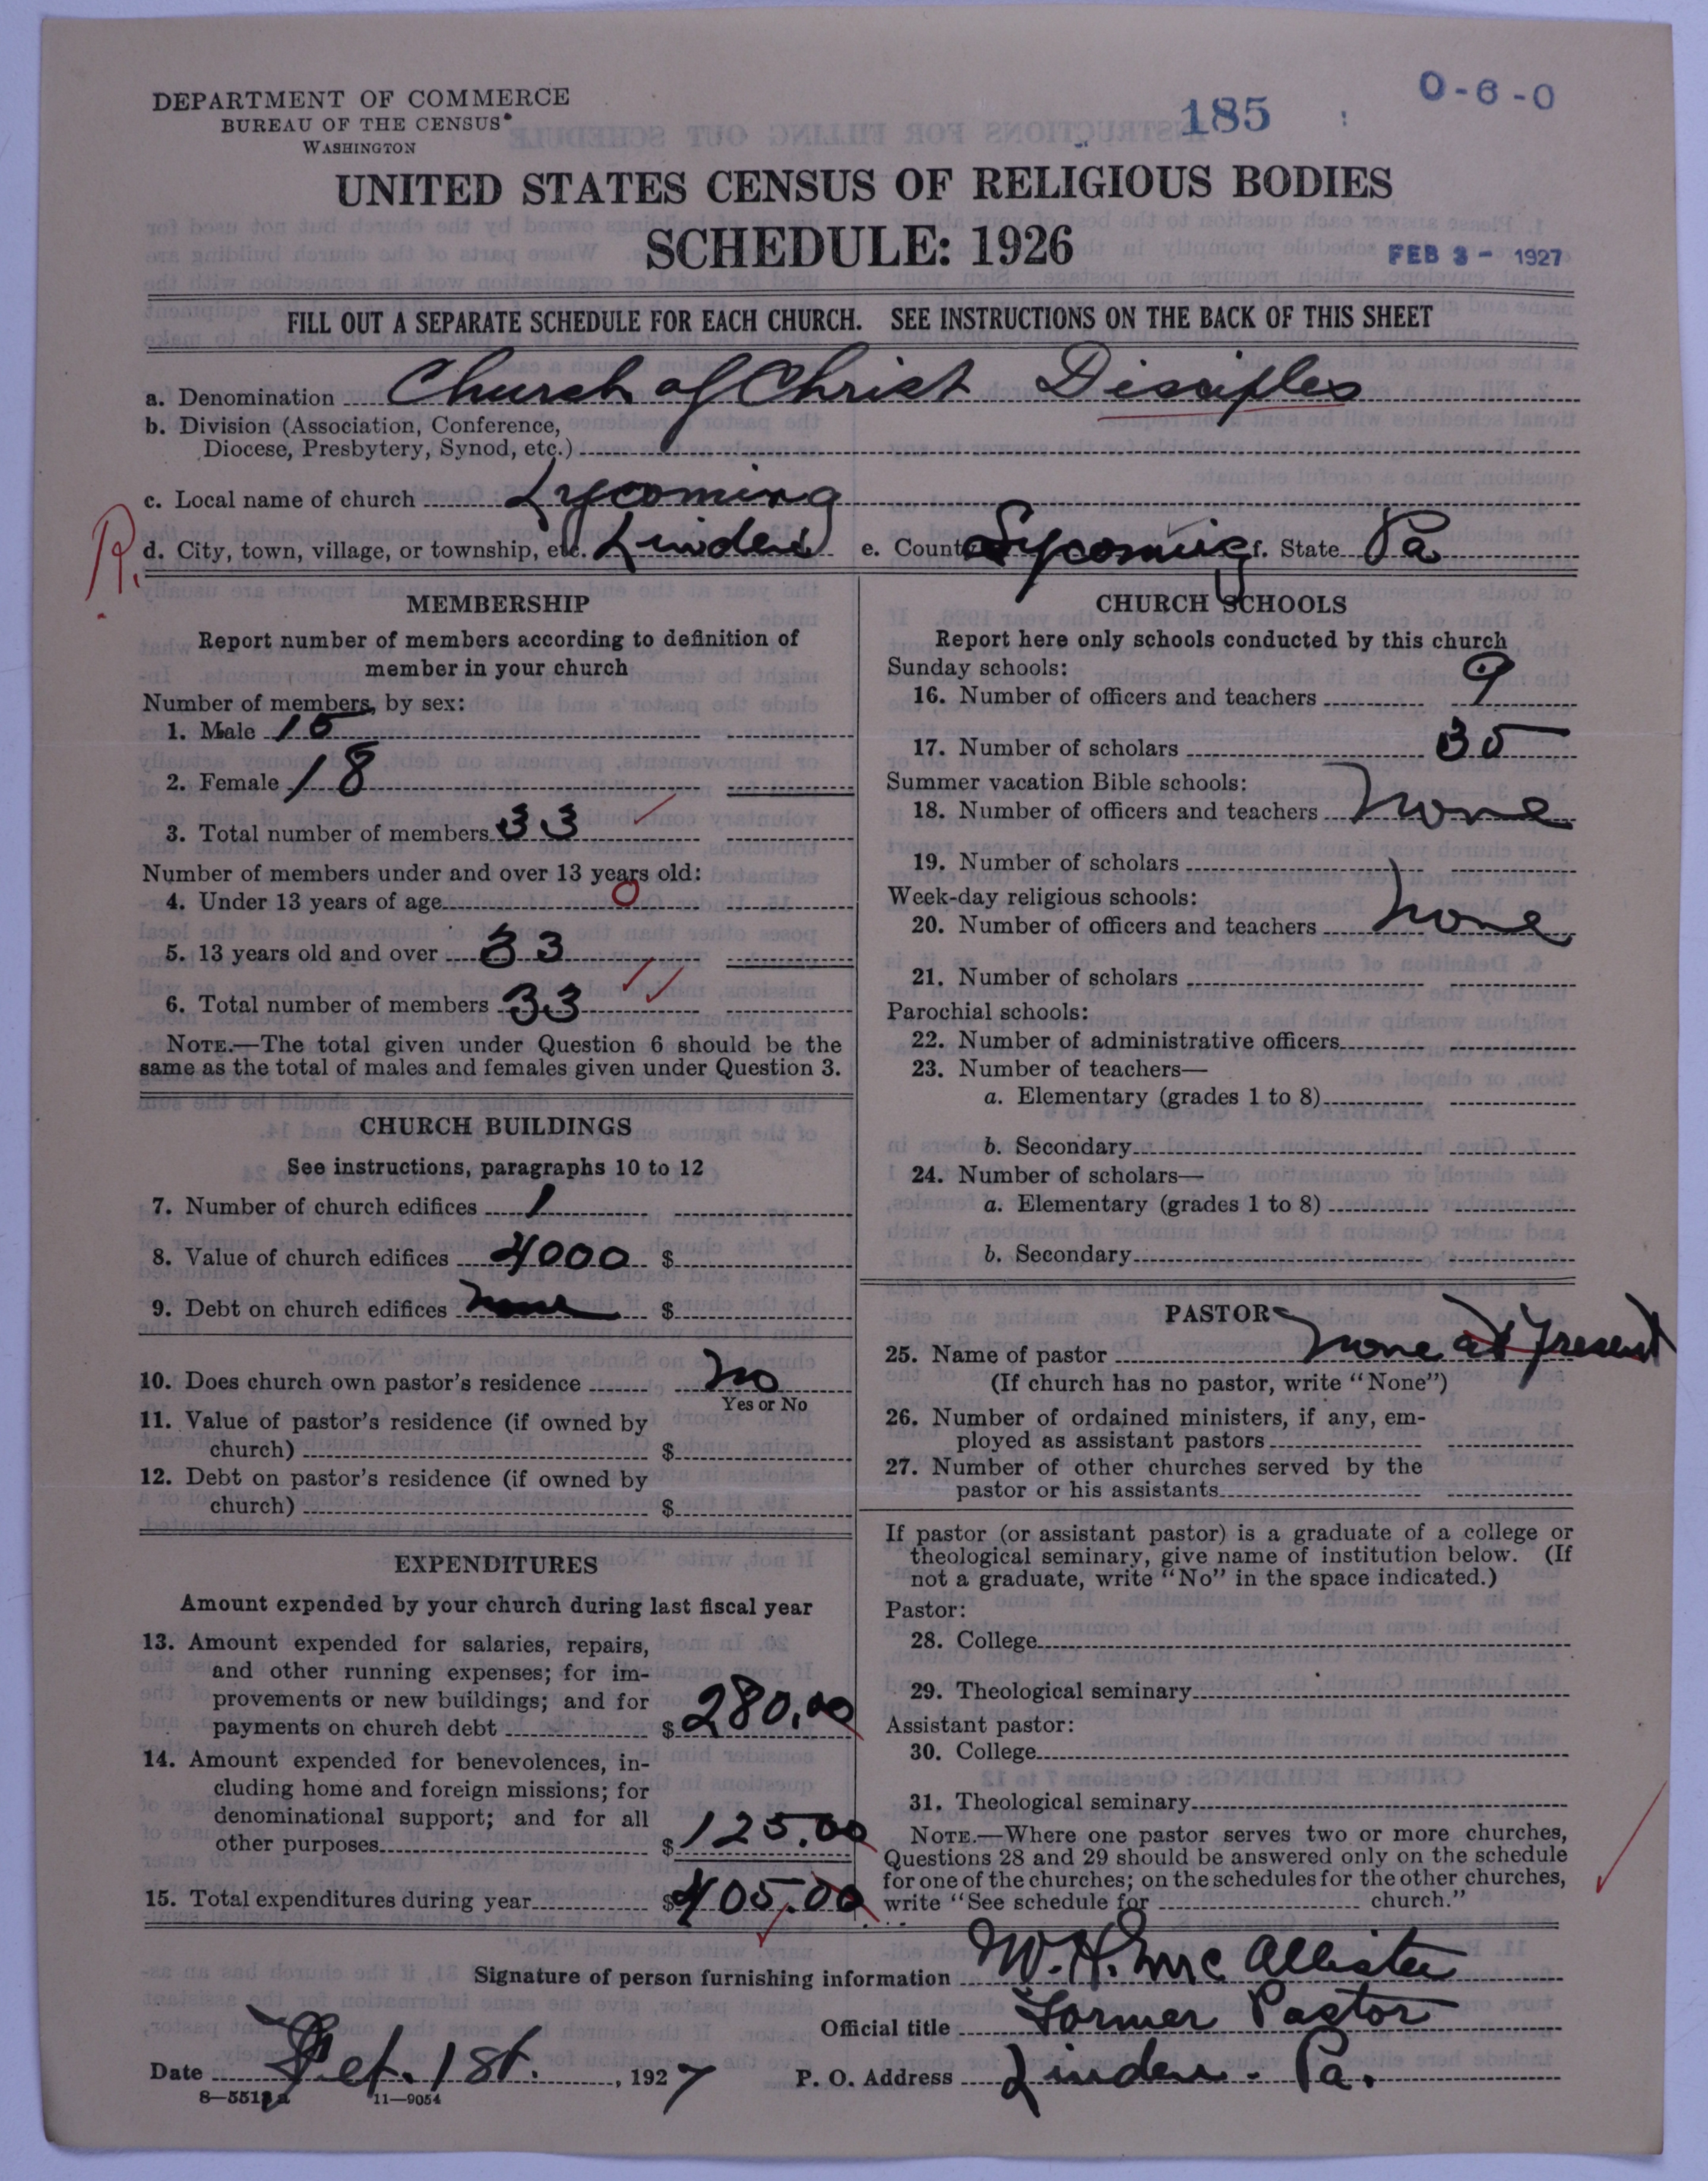 DEPARTMENT OF COMMERCE
BUREAU OF THE CENSUS
WASHINGTON
185
0-6-0
UNITED STATES CENSUS OF RELIGIOUS BODIES
SCHEDULE: 1926
FEB 3 - 1927
FILL OUT A SEPARATE SCHEDULE FOR EACH CHURCH. SEE INSTRUCTIONS ON THE BACK OF THIS SHEET
a. Denomination Church of Christ Disciples
b. Division (Association, Conference,
Diocese, Presbytery, Synod, etc.)
c. Local name of church Lycoming
R.
d. City, town, village, or township, etc. Linden e. County Lycoming f. State Pa
MEMBERSHIP
Report number of members according to definition of
member in your church
Number of members, by sex:
1. Male 15
2. Female 18
3. Total number of members 33
Number of members under and over 13 years old:
4. Under 13 years of age 0
5. 13 years old and over 33
6. Total number of members 33
NOTE.—The total given under Question 6 should be the
same as the total of males and females given under Question 3.
CHURCH BUILDINGS
See instructions, paragraphs 10 to 12
7. Number of church edifices 1
8. Value of church edifices 4000 $
9. Debt on church edifices none $
10. Does church own pastor's residence No
Yes or No
11. Value of pastor's residence (if owned by
church) $
12. Debt on pastor's residence (if owned by
church) $
EXPENDITURES
Amount expended by your church during last fiscal year
13. Amount expended for salaries, repairs,
and other running expenses; for im-
provements or new buildings; and for
payments on church debt $ 280.00
14. Amount expended for benevolences, in-
cluding home and foreign missions; for
denominational support; and for all
other purposes $ 125.00
15. Total expenditures during year $ 405.00
CHURCH SCHOOLS
Report here only schools conducted by this church
Sunday schools:
16. Number of officers and teachers 9
17. Number of scholars 35
Summer vacation Bible schools:
18. Number of officers and teachers none
19. Number of scholars
Week-day religious schools:
20. Number of officers and teachers none
21. Number of scholars
Parochial schools:
22. Number of administrative officers
23. Number of teachers—
a. Elementary (grades 1 to 8)
b. Secondary
24. Number of scholars—
a. Elementary (grades 1 to 8)
b. Secondary
PASTOR
25. Name of pastor none at Present
(If church has no pastor, write "None")
26. Number of ordained ministers, if any, em-
ployed as assistant pastors
27. Number of other churches served by the
pastor or his assistants
If pastor (or assistant pastor) is a graduate of a college or
theological seminary, give name of institution below. (If
not a graduate, write "No" in the space indicated.)
Pastor:
28. College
29. Theological seminary
Assistant pastor:
30. College
31. Theological seminary
NOTE.—Where one pastor serves two or more churches,
Questions 28 and 29 should be answered only on the schedule
for one of the churches; on the schedules for the other churches,
write "See schedule for church."
Signature of person furnishing information W. H. McAllister
Official title Former Pastor
Date Feb. 1st. , 1927 P. O. Address Linden - Pa.
8—5513a 11—9054